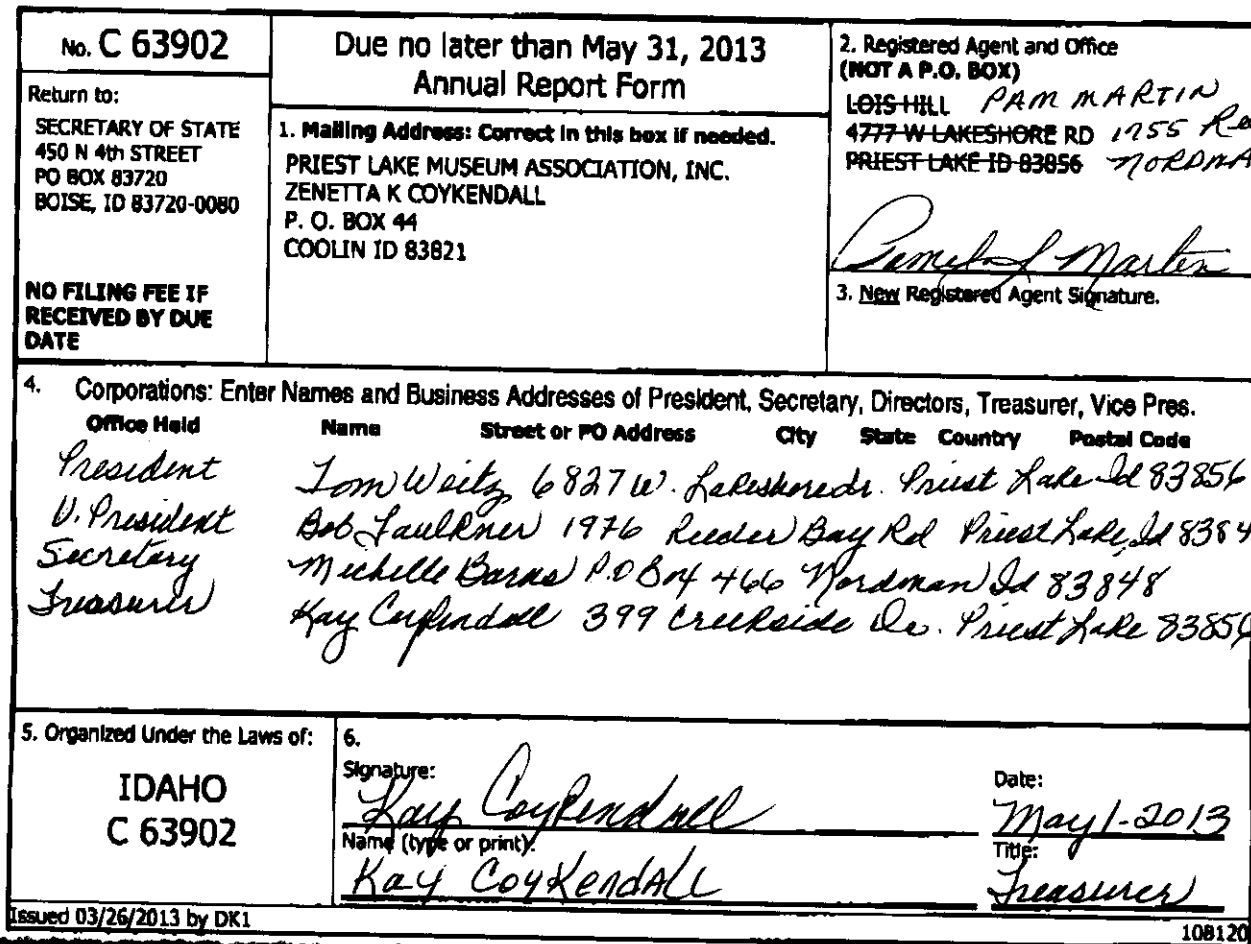 No. C 63902
Return to:
SECRETARY OF STATE
450 N 4th STREET
PO BOX 83720
BOISE, ID 83720-0080
NO FILING FEE IF
RECEIVED BY DUE
DATE
Due no later than May 31, 2013
Annual Report Form
1. Mailing Address: Correct in this box if needed.
PRIEST LAKE MUSEUM ASSOCIATION, INC.
ZENETTA K COYKENDALL
P. O. BOX 44
COOLIN ID 83821
2. Registered Agent and Office
(NOT A P.O. BOX)
LOIS HILL PAM MARTIN
4777 W LAKESHORE RD 1755
PRIEST LAKE ID 83856
Pamela L Martin
3. New Registered Agent Signature.
4. Corporations: Enter Names and Business Addresses of President, Secretary, Directors, Treasurer, Vice Pres.
Office Held Name Street or PO Address City State Country Postal Code
President Tom Weitz 6827 W. Lakeshore dr. Priest Lake Id 83856
V. President Bob Faulkner 1976 Reeder Bay Rd Priest Lake, Id 8384
Secretary Michelle Barns P.O Box 466 Nordman Id 83848
Treasurer Kay Coykendall 399 Creekside Dr. Priest Lake 83856
5. Organized Under the Laws of:
IDAHO
C 63902
6.
Signature:
Kay Coykendall
Name (type or print):
Kay Coykendall
Date:
May 1-2013
Title:
Treasurer
Issued 03/26/2013 by DK1
108120